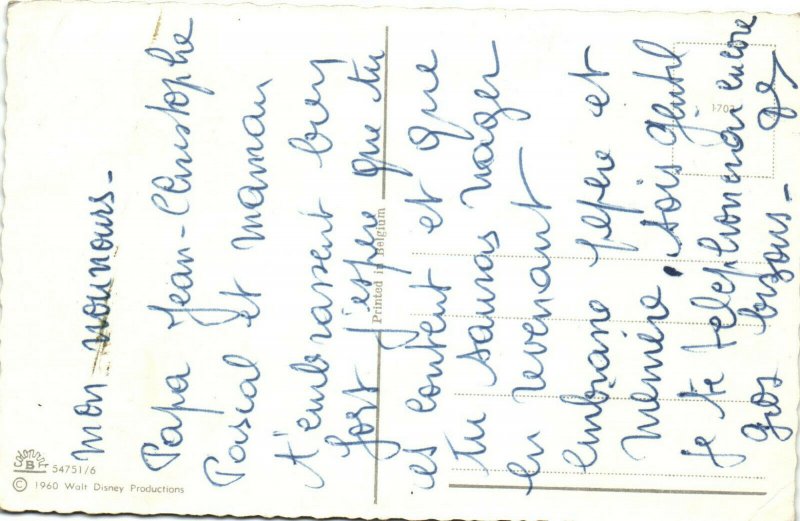 mon nounours-
Papa Jean-Christophe
Pascal et maman
t'embrassent bien
fort j'espère que tu
es content et que
tu sauras nager
en revenant
embrasse pépère et
mémère, sois gentil
je te téléphonerai encore
gros bisous-
Printed in Belgium
1703
B
54751/6
© 1960 Walt Disney Productions